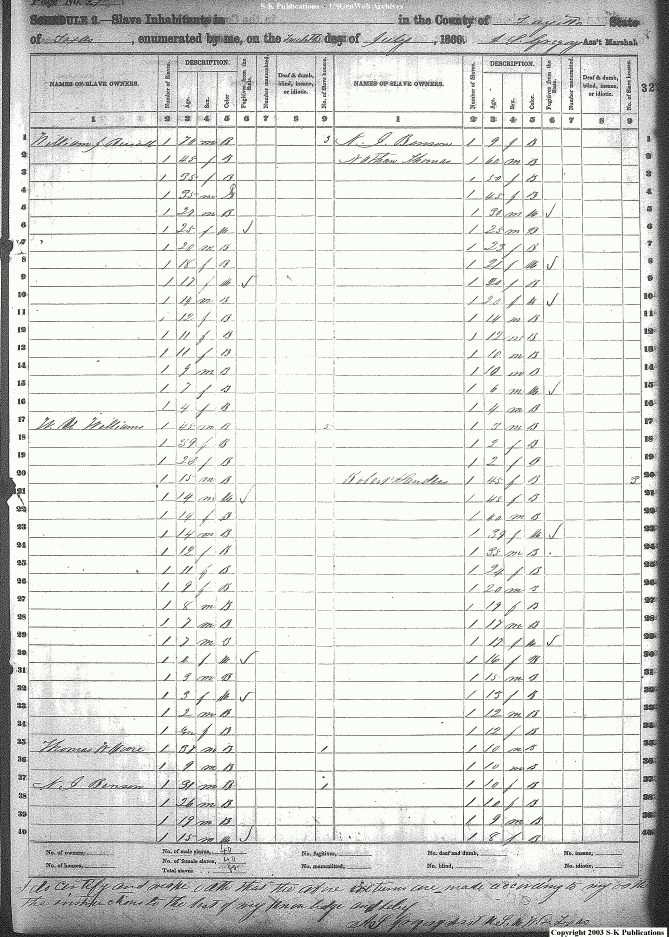 S-K Publications - USGenWeb Archives
Page No. 27
SCHEDULE 2.—Slave Inhabitants in in the County of Fayette State
of Texas, enumerated by me, on the twelfth day of July, 1860. Ass't Marshal.
NAMES OF SLAVE OWNERS. Number of Slaves. DESCRIPTION. Age. Sex. Color. Fugitives from the State. Number manumitted. Deaf & dumb, blind, insane, or idiotic. No. of Slave houses. NAMES OF SLAVE OWNERS. Number of Slaves. DESCRIPTION. Age. Sex. Color. Fugitives from the State. Number manumitted. Deaf & dumb, blind, insane, or idiotic. No. of Slave houses. 32
1 2 3 4 5 6 7 8 9 1 2 3 4 5 6 7 8 9
1 William J 1 70 m B 3 N. J. Benson 1 9 f B 1
2 1 45 f B Nathan Thomas 1 60 m B 2
3 1 35 f B 1 50 f B 3
4 1 35 m B 1 45 f B 4
5 1 29 m B 1 30 m M ✓ 5
6 1 25 f M ✓ 1 25 m B 6
7 1 20 m B 1 23 f B 7
8 1 18 f B 1 21 f M ✓ 8
9 1 17 f M ✓ 1 20 f B 9
10 1 14 m B 1 20 f M ✓ 10
11 1 12 f B 1 14 m B 11
12 1 11 f B 1 12 m B 12
13 1 11 f B 1 10 m B 13
14 1 9 m B 1 10 m B 14
15 1 7 f B 1 6 m M ✓ 15
16 1 4 f B 1 4 m B 16
17 Williams 1 45 m B 5 1 3 m B 17
18 1 39 f B 1 2 f B 18
19 1 23 f B 1 2 f B 19
20 1 15 m B Robert Sanders 1 45 f B 20
21 1 14 m M ✓ 1 45 f B 21
22 1 14 f B 1 40 m B 22
23 1 14 m B 1 39 f M ✓ 23
24 1 12 f B 1 35 m B 24
25 1 11 f B 1 24 f B 25
26 1 9 f B 1 20 m B 26
27 1 8 m B 1 19 f B 27
28 1 7 m B 1 17 m B 28
29 1 7 m B 1 17 f M ✓ 29
30 1 4 f M ✓ 1 16 f B 30
31 1 3 m B 1 15 m B 31
32 1 3 f M ✓ 1 13 f B 32
33 1 2 m B 1 12 m B 33
34 1 f B 1 12 f B 34
35 Thomas W Moore 1 39 m B 1 1 10 m B 35
36 1 9 m B 1 10 m B 36
37 N. J. Benson 1 31 m B 1 1 10 f B 37
38 1 26 m B 1 10 f B 38
39 1 19 m B 1 9 m B 39
40 1 15 m M ✓ 1 8 f B 40
No. of owners, No. of male slaves, 40 No. fugitives, No. deaf and dumb, No. insane,
No. of houses, No. of female slaves, 40 No. manumitted, No. blind, No. idiotic,
Total slaves
I do certify and make oath that the above returns are made according to my oath
the instructions to the best of my knowledge and belief
Copyright 2003 S-K Publications